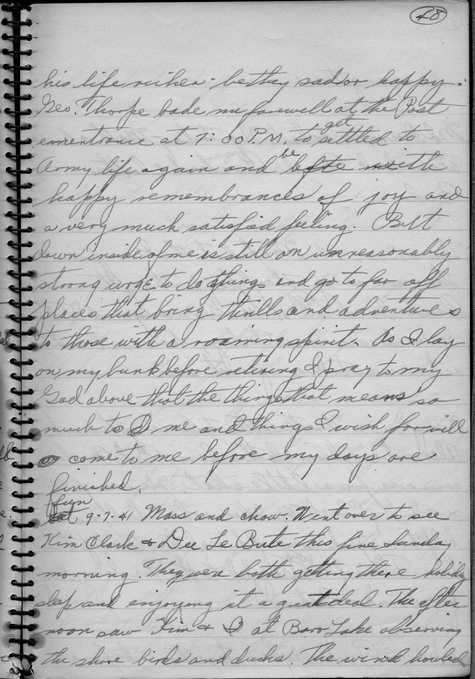 48
his life richer - be they sad or happy.
Geo. Thorpe bade me farewell at the Post
entrance at 7:00 P.M. to get settled to
Army life again and be left with
happy remembrances of joy and
a very much satisfied feeling. But
down inside of me is still an unreasonably
strong urge to do things and go to far off
places that bring thrills and adventures
to those with a roaming spirit. As I lay
on my bunk before retiring I pray to my
God above that the things that means so
much to me and things I wish for will
come to me before my days are
finished.
Sun 9-7-41 Mass and chow. Went over to see
Kim Clark & Dee Le Bute this fine Sunday
morning. They were both getting there holiday
sleep and enjoying it a great deal. The after
noon saw Kim & I at Barr Lake observing
the shore birds and ducks. The wind howled